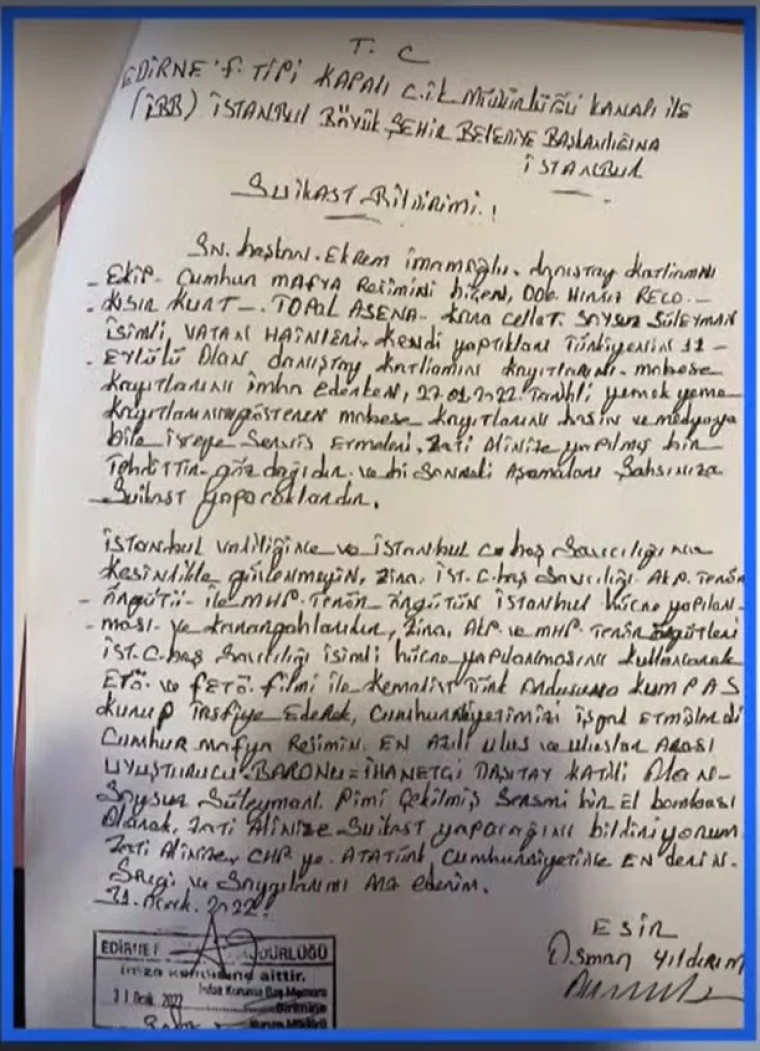 T. C
EDİRNE'F. TİPİ KAPALI C.İK MÜDÜRLÜĞÜ KANALI ile
(İBB) İSTANBUL BÜYÜK ŞEHİR BELEDİYE BAŞKANLIĞINA
İSTANBUL
SUİKAST Bildirimi.!
SN. başkan. EkREM imamoğlu. danıştay Katliamını
EKİP. Cumhur MAFYA Rejimini
KISIR KURT-. TOPAL ASENA- Kara Cellat. Soysuz SÜLEYMAN
isimli, VATAN HAİNLERİ. Kendi yaptıkları Türkiyenin 11-
EYLÜLÜ Olan danıştay Katliamını Kayıtlarını- mobese
Kayıtlarını imha ederken, 27.01.2022. Tarihli yemek yeme
Kayıtlarını gösteren mobese Kayıtlarını basın ve medyaya
bile Servis Etmeleri, Zati Alinize yapılmış bir
Tehdittir- göz dağıdır. ve bi Sonraki Aşamaları Şahsınıza
Suikast yapacaklardır.
İSTANbul Valiliğine ve İSTANbul C.baş Savcılığına
Kesinlikle güvenmeyin, Zira, İST. C.baş Savcılığı. AKP. Terör
Örgütü- ile MHP. Terör Örgütün İSTANbul hücre yapılan-
ması- ve Karargahlarıdır, Zira, AKP ve MHP. Terör Örgütleri
İST. C.baş Savcılığı isimli hücre yapılanmasını Kullanarak
ETÖ. ve FETÖ. filmi ile Kemalist Türk Ordusuna KUMPAS
Kurup Tasfiye Ederek, Cumhuriyetimizi işgal ETMİŞlerdi
Cumhur mafya Rejimin. EN Azılı ulus ve uluslar Arası
UYUŞTURUCU-BARONU= İHANETÇİ KATİLİ Olan-
Soysuz Süleymanı. Pimi Çekilmiş Serseri bir El bombası
Olarak, Zati Alinize Suikast yapacağını bildiriyorum
Zati Alinize, CHP ye. ATATÜRK, Cumhuriyetine EN derin-
Sevgi ve Saygılarımı Arz ederim.
31. Ocak. 2022!
ESİR
Osman YILDIRIM
EDİRNE F MÜDÜRLÜĞÜ
İmza kendisine aittir.
31 Ocak 2022
İnfaz Koruma Baş Memuru